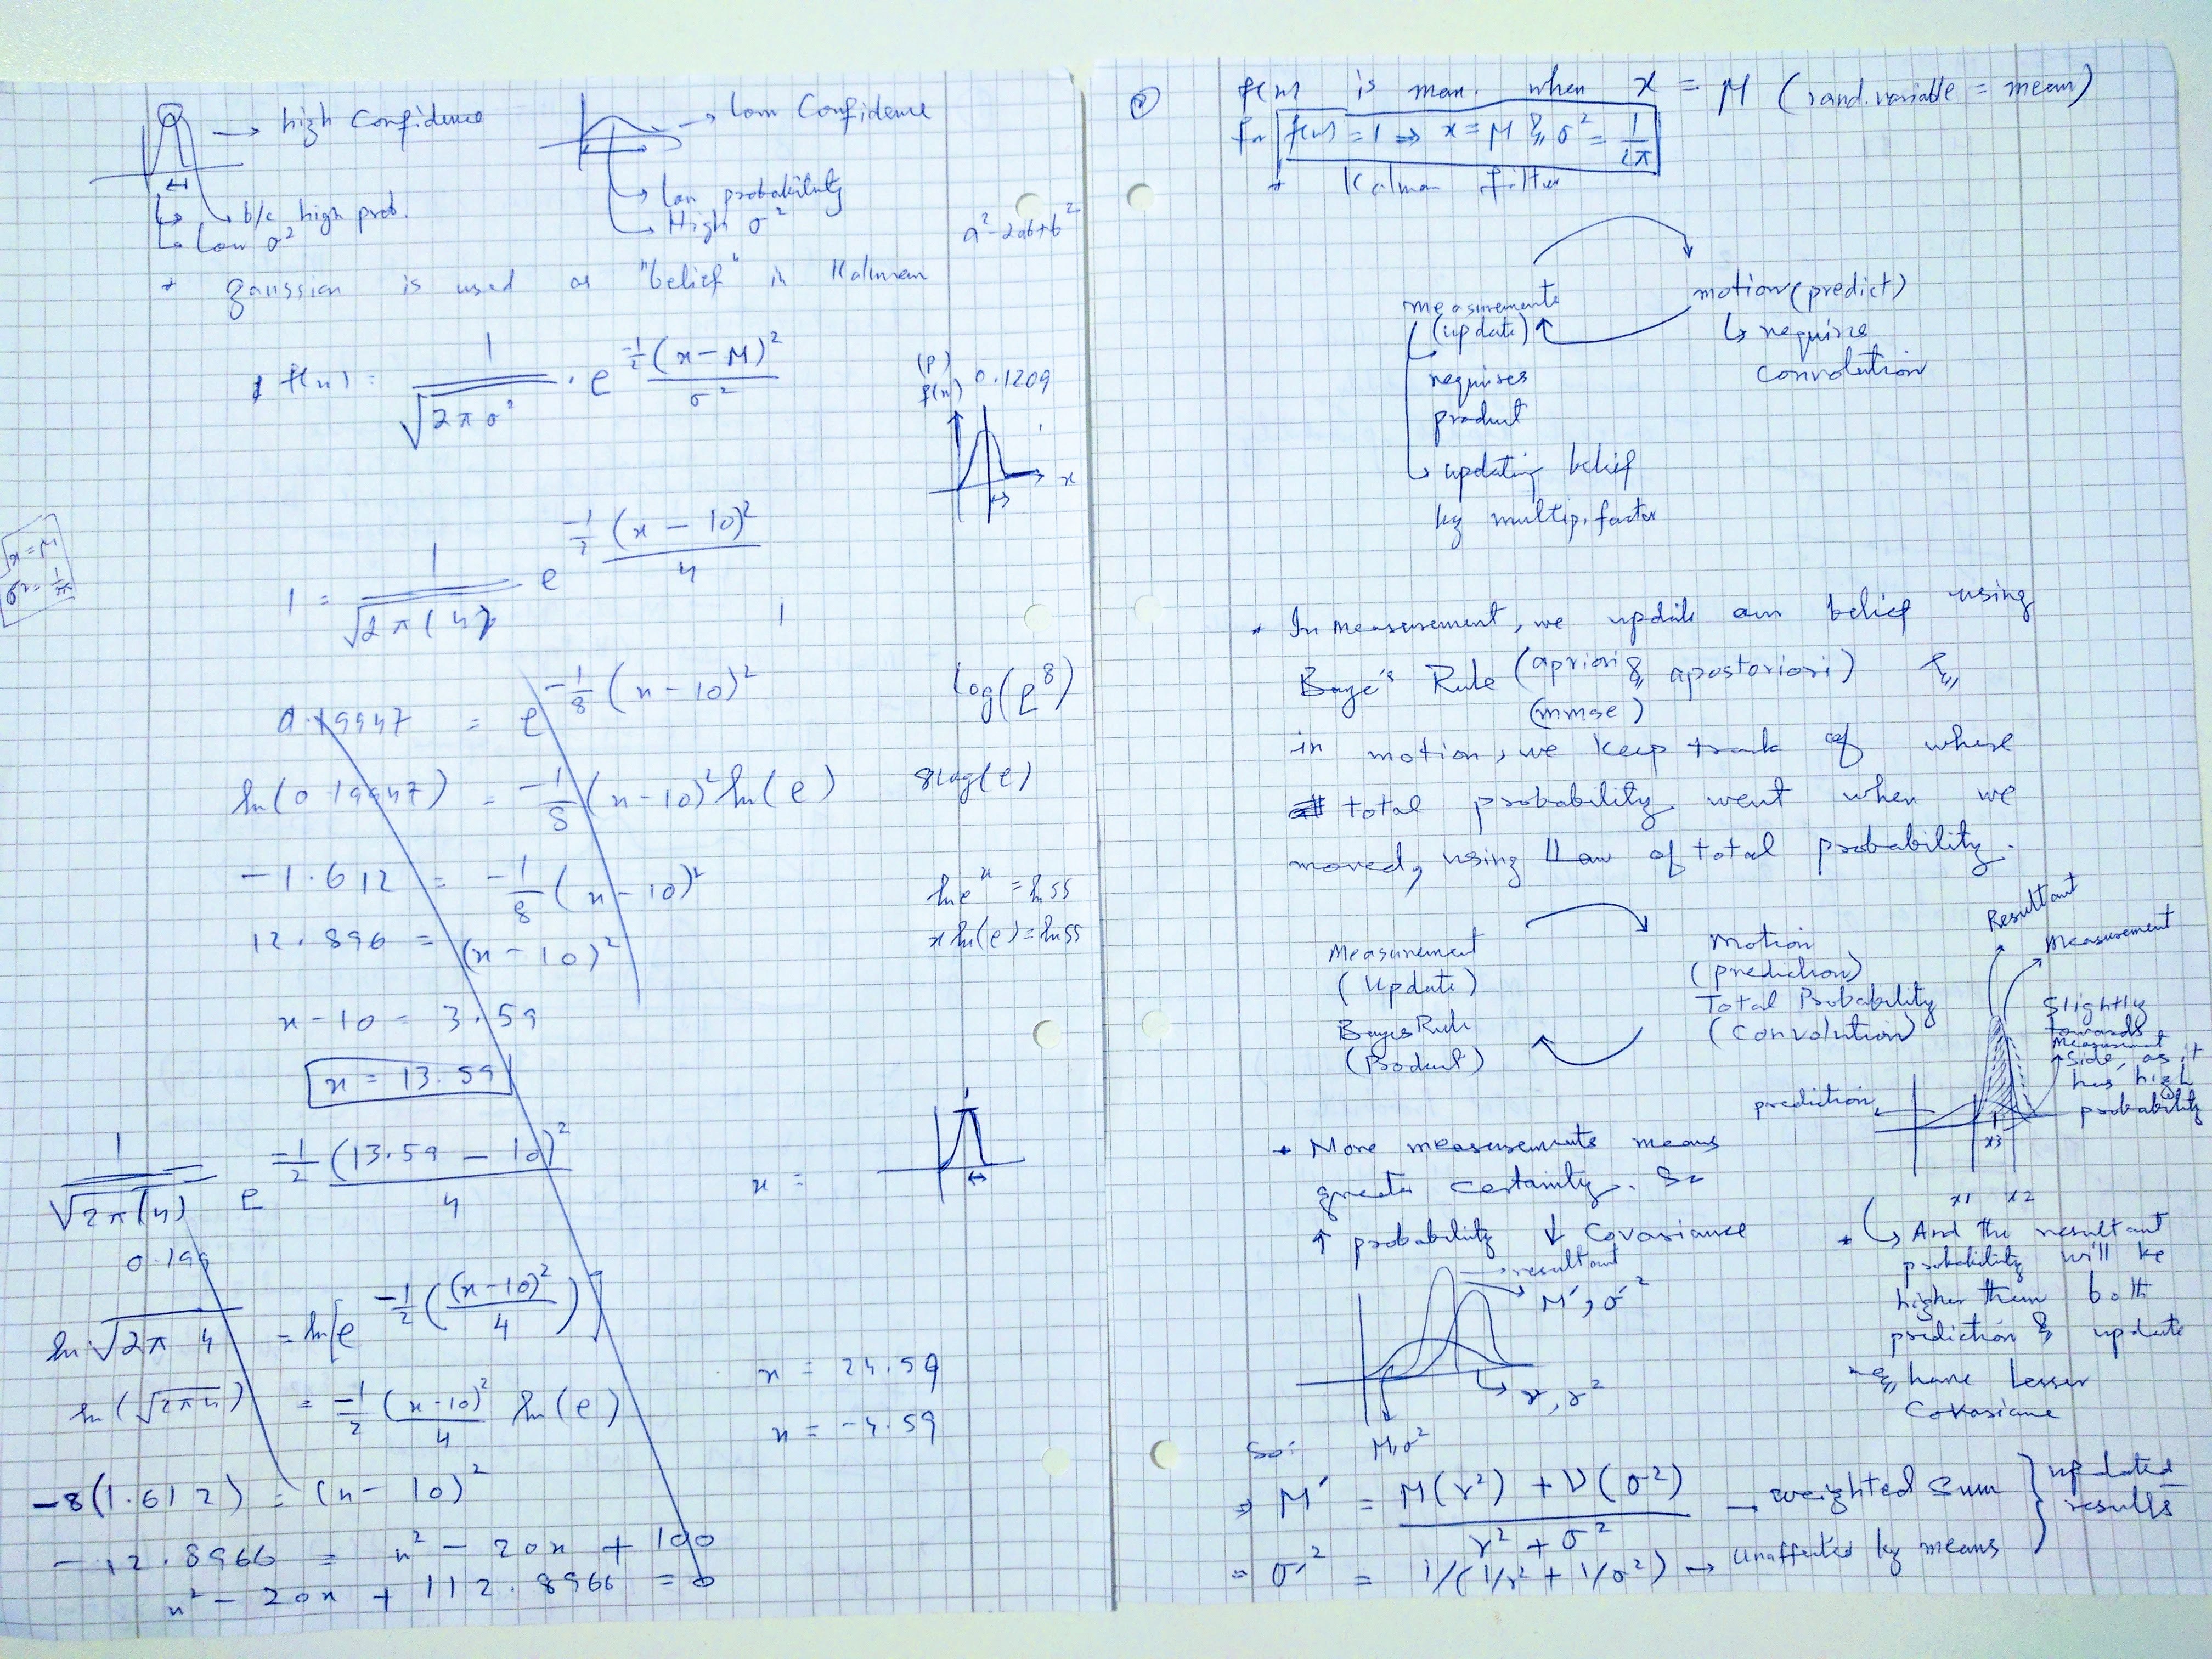 → high Confidence
→ low Confidence
b/c high prob.
Low σ²
Low probability
High σ²
a² - 2ab + b²
* gaussian is used as "belief" in Kalman
f(x) = 1/√(2πσ²) · e^(-1/2 (x-M)²/σ²)
(P)
f(x) 0.1209
x
1 = 1/√(2π(4)) e^(-1/2 (x - 10)²/4)
x = M
σ² = 1/2π
0.19947 = e^(-1/8 (x - 10)²)
log(e⁸)
ln(0.19947) = -1/8 (x-10)² ln(e)
8 log(e)
-1.612 = -1/8 (x-10)²
ln eˣ = ln 55
12.896 = (x - 10)²
x ln(e) = ln 55
x - 10 = 3.59
x = 13.59
1/√(2π(4)) e^(-1/2 (13.59 - 10)²/4)
x =
0.199
ln √(2π 4) = ln[e^(-1/2 ((x-10)²/4))]
x = 24.59
ln (√(2π4)) = -1/2 (x-10)²/4 ln(e)
x = -4.59
-8(1.612) = (x - 10)²
-12.8966 = x² - 20x + 100
x² - 20x + 112.8966 = 0
f(x) is max. when x = M (rand. variable = mean)
for f(x) = 1 ⇒ x = M & σ² = 1/2π
* Kalman filter
measurements
(update)
motion (predict)
↳ require
convolution
requires
product
↳ updating belief
by multip. factor
* In measurement, we update our belief using
Baye's Rule (apriori & apostoriori) &
(mmse)
in motion, we keep track of where
total probability went when we
moved, using Law of total probability.
Measurement
(Update)
Bayes Rule
(Product)
Motion
(prediction)
Total Probability
(Convolution)
Resultant
Measurement
Slightly
towards
Measurement
side, as it
has high
probability
prediction
x3
x1 x2
* More measurements means
greater certainity. So
↑ probability ↓ Covariance
→ resultant
M', σ'²
r, r²
M, σ²
* ↳ And the resultant
probability will be
higher than both
prediction & update
& have Lesser
Covariance
So:
⇒ M' = M(r²) + ν(σ²) / r² + σ² → weighted sum
= σ'² = 1/(1/r² + 1/σ²) → Unaffected by means
updated
results